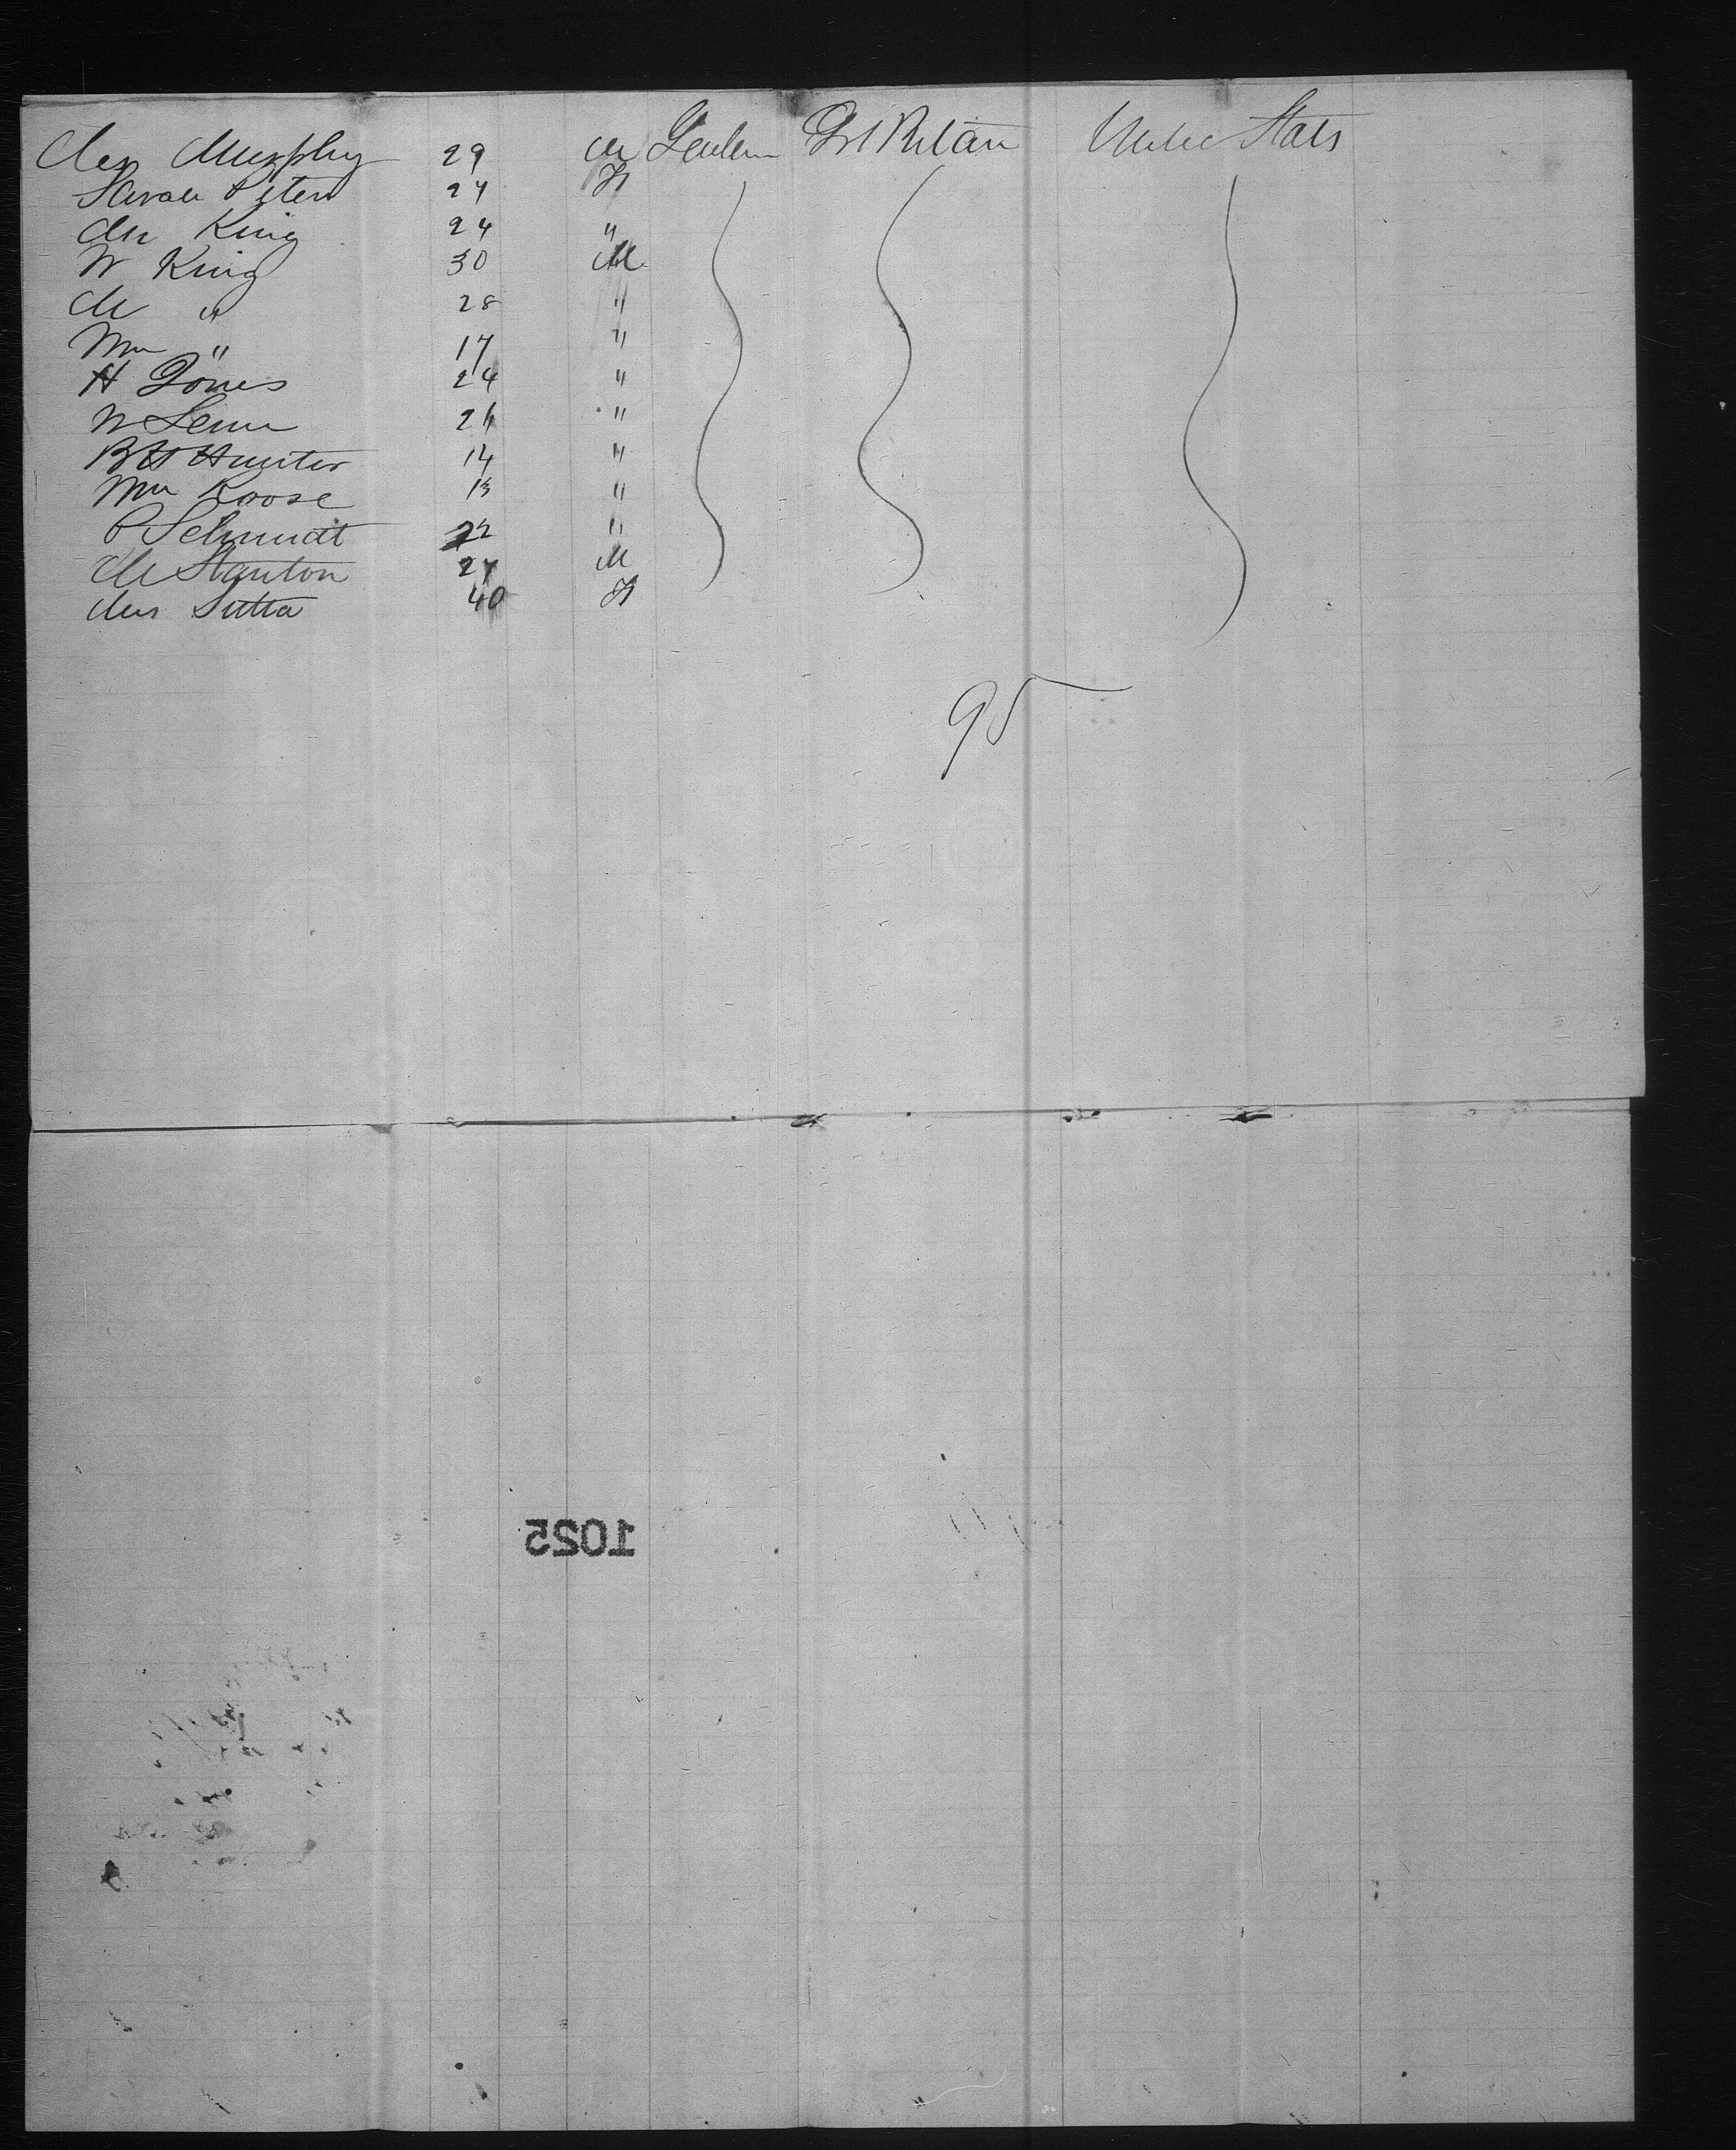 Murphy 29 M Gentlem Grt Britain United States
Sarah Peters 24 F
Mr King 24 "
W King 30 M
M " 28 "
Wm " 17 "
H Jones 24 "
W 26 "
B H Hunter 14 "
Wm Roose 13 "
P Schmidt 22 "
M Stanton 27 M
Mrs 40 F
95
1025